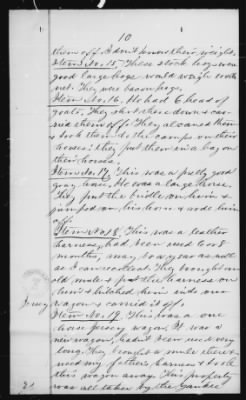 10
them off. I don't know their weight.
Item No. 15. These stock hogs were
good large hogs would weigh
net. They were bacon hogs.
Item No. 16. He had 6 head of
goats. They shot these down & car-
ried them off. They also
& took them to the camps on their
horses: they put them in a bag on
their horses.
Item No. 17. This was a pretty good
gray horse. He was a large horse.
They put the bridle on him &
jumped on his horse & rode him
off.
Item No. 18. This was a leather
harness, had been used 6 or 8
months, may be a year as well
as I can recollect. They brought an
old mule & put the harness on
him & hitched him into our
wagon & carried it off.
Item No. 19. This was a one
horse Jersey wagon. It was a
new wagon, hadn't been used very
long. They brought a mule there &
used my father's harness & took
this wagon away. This property
was all taken by the Yankee